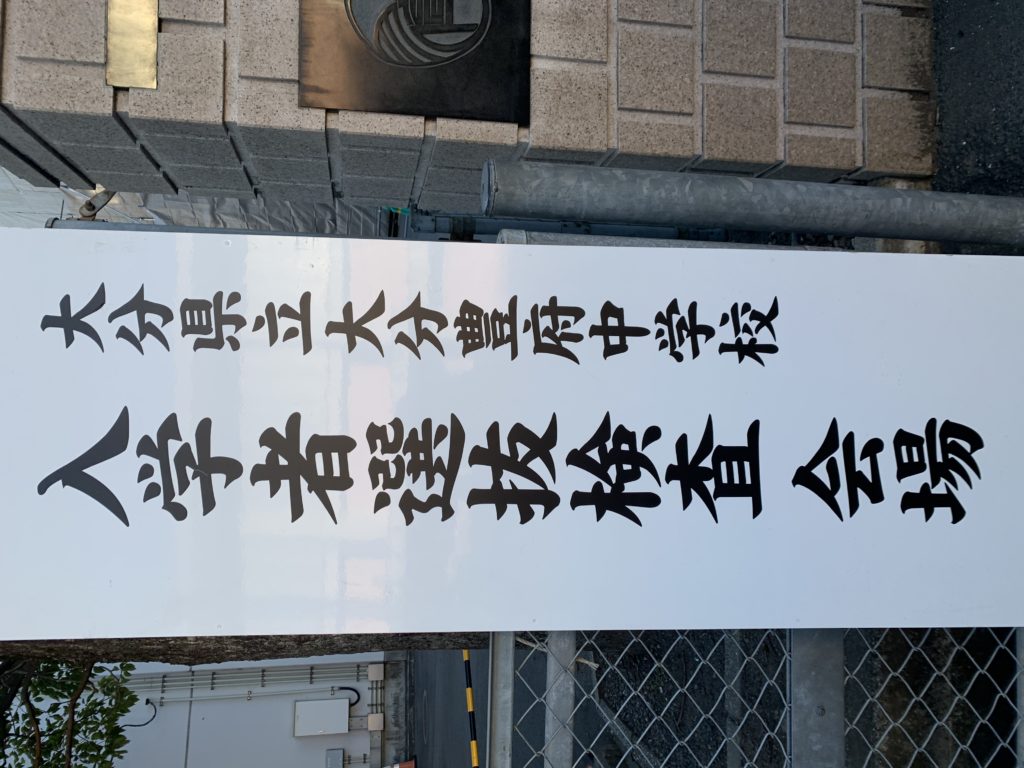 大分県立大分豊府中学校
入学者選抜検査 会場